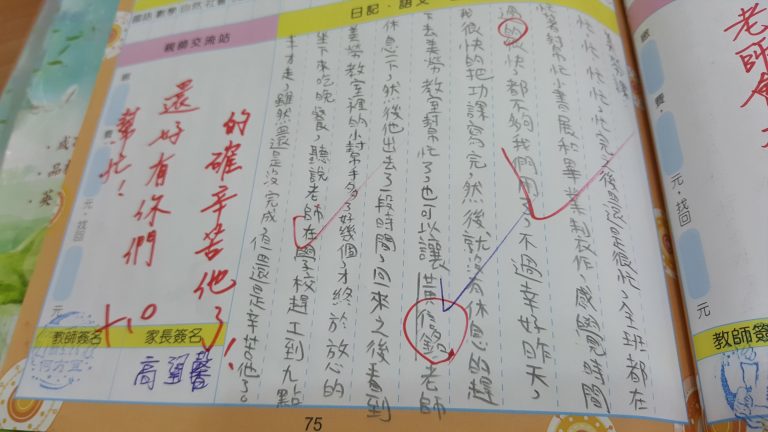 日記、語文
美勞課
忙,忙,忙,忙,忙完之後還是很忙,全班都在
忙著幫忙,書展和畢業製作,感覺時間
過的很快,都不夠我們用了,不過幸好昨天,
我很快的把功課寫完,然後就沒有休息的趕
下去美勞教室幫忙了,也可以讓黃信銘老師
休息一下,然後他出去了一段時間,回來之後看到
美勞教室裡的小幫手多了好幾個,才終於放心的
坐下來吃晚餐,聽說老師在學校趕工到九點
半才走,雖然還是沒完成,但還是辛苦他了。
的確辛苦他了!
還好有你們
幫忙!
+10
國語 數學 自然 社會
親師交流站
費
元,找回
元
教師簽名
家長簽名
何方宜
75
老師
費
元,找回
元
教師簽